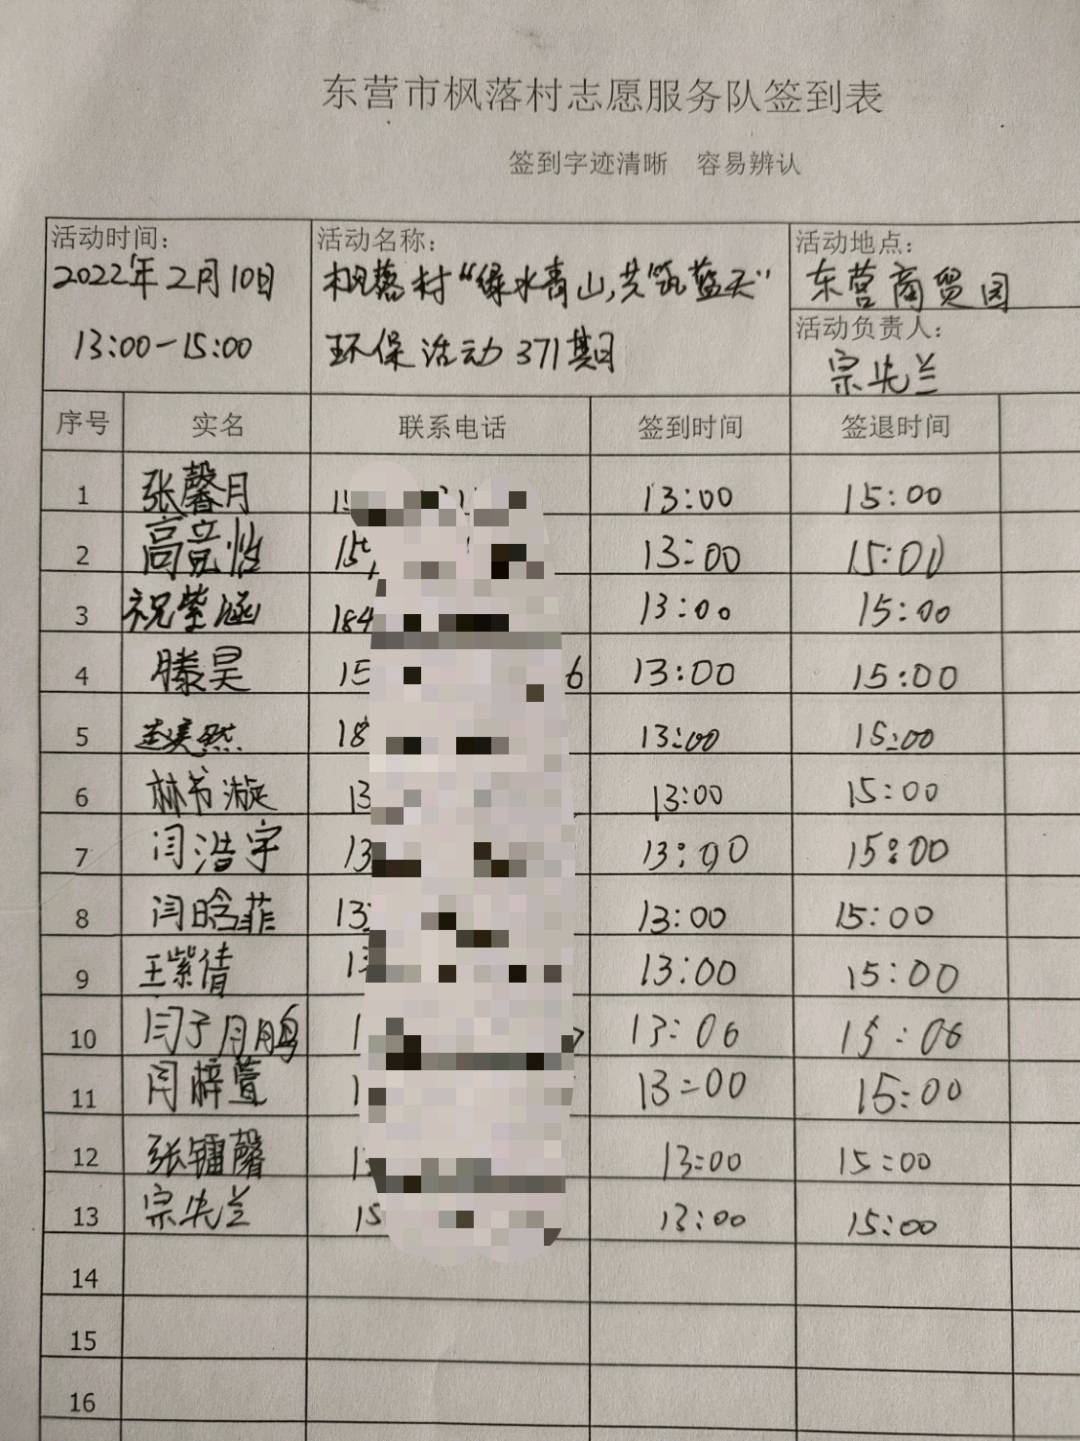 东营市枫落村志愿服务队签到表
签到字迹清晰 容易辨认
活动时间:
2022年2月10日
13:00-15:00
活动名称:
枫落村“绿水青山,共筑蓝天”
环保活动371期
活动地点:
东营商贸园
活动负责人:
宗先兰
序号 实名 联系电话 签到时间 签退时间
1 张馨月 13:00 15:00
2 高 13:00 15:00
3 祝紫涵 184 13:00 15:00
4 滕昊 15 6 13:00 15:00
5 然 18 13:00 15:00
6 林书漩 13 13:00 15:00
7 闫浩宇 13 13:00 15:00
8 闫晗菲 13 13:00 15:00
9 王紫倩 13 13:00 15:00
10 闫子月鹏 1 13:06 15:06
11 闫梓萱 1 13:00 15:00
12 张镭馨 1 13:00 15:00
13 宗先兰 15 13:00 15:00
14
15
16